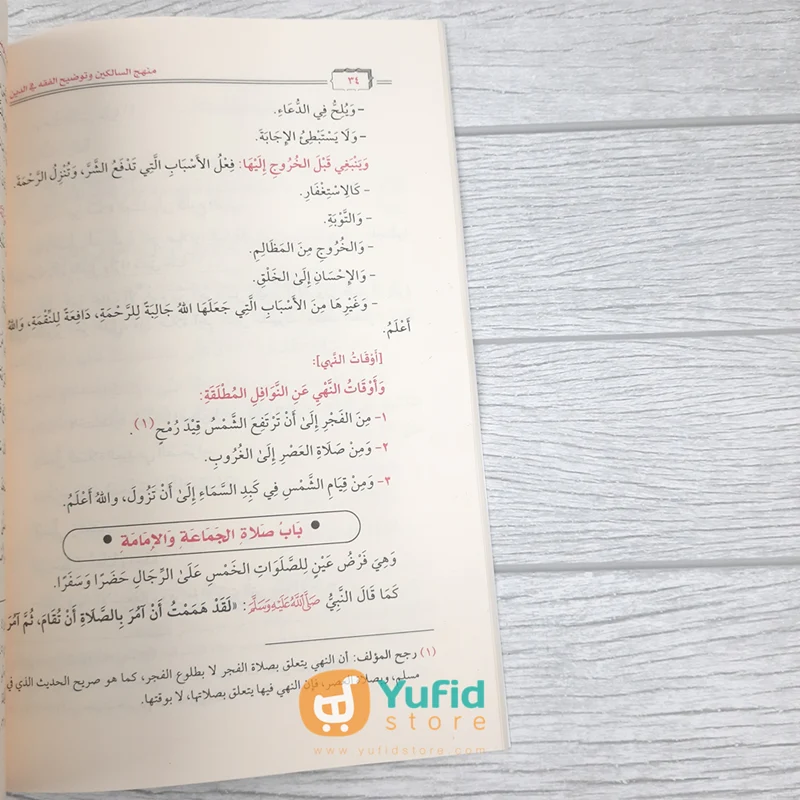 ٣٤
منهج السالكين وتوضيح الفقه في الدين
- وَيُلِحُّ فِي الدُّعَاءِ.
- وَلَا يَسْتَبْطِئُ الإِجَابَةَ.
وَيَنْبَغِي قَبْلَ الخُرُوجِ إِلَيْهَا: فِعْلُ الأَسْبَابِ الَّتِي تَدْفَعُ الشَّرَّ، وَتُنْزِلُ الرَّحْمَةَ.
- كَالِاسْتِغْفَارِ.
- وَالتَّوْبَةِ.
- وَالخُرُوجِ مِنَ المَظَالِمِ.
- وَالإِحْسَانِ إِلَىٰ الخَلْقِ.
- وَغَيْرِهَا مِنَ الأَسْبَابِ الَّتِي جَعَلَهَا اللهُ جَالِبَةً لِلرَّحْمَةِ، دَافِعَةً لِلنِّقْمَةِ، وَاللهُ
أَعْلَمُ.
[أَوْقَاتُ النَّهيِ]:
وَأَوْقَاتُ النَّهْيِ عَنِ النَّوَافِلِ المُطْلَقَةِ:
١- مِنَ الفَجْرِ إِلَىٰ أَنْ تَرْتَفِعَ الشَّمْسُ قِيْدَ رُمْحٍ(١).
٢- وَمِنْ صَلَاةِ العَصْرِ إِلَىٰ الغُرُوبِ.
٣- وَمِنْ قِيَامِ الشَّمْسِ فِي كَبِدِ السَّمَاءِ إِلَىٰ أَنْ تَزُولَ، وَاللهُ أَعْلَمُ.
بَابُ صَلَاةِ الجَمَاعَةِ وَالإِمَامَةِ
وَهِيَ فَرْضُ عَيْنٍ لِلصَّلَوَاتِ الخَمْسِ عَلَىٰ الرِّجَالِ حَضَرًا وَسَفَرًا.
كَمَا قَالَ النَّبِيُّ صَلَّى اللَّهُ عَلَيْهِ وَسَلَّمَ: «لَقَدْ هَمَمْتُ أَنْ آمُرَ بِالصَّلَاةِ أَنْ تُقَامَ، ثُمَّ آمُرَ
(١) رجح المؤلف: أن النهي يتعلق بصلاة الفجر لا بطلوع الفجر، كما هو صريح الحديث الذي في
مسلم، وبصلاة العصر، فإن النهي فيها يتعلق بصلاتها، لا بوقتها.
Yufid
store
www.yufidstore.com